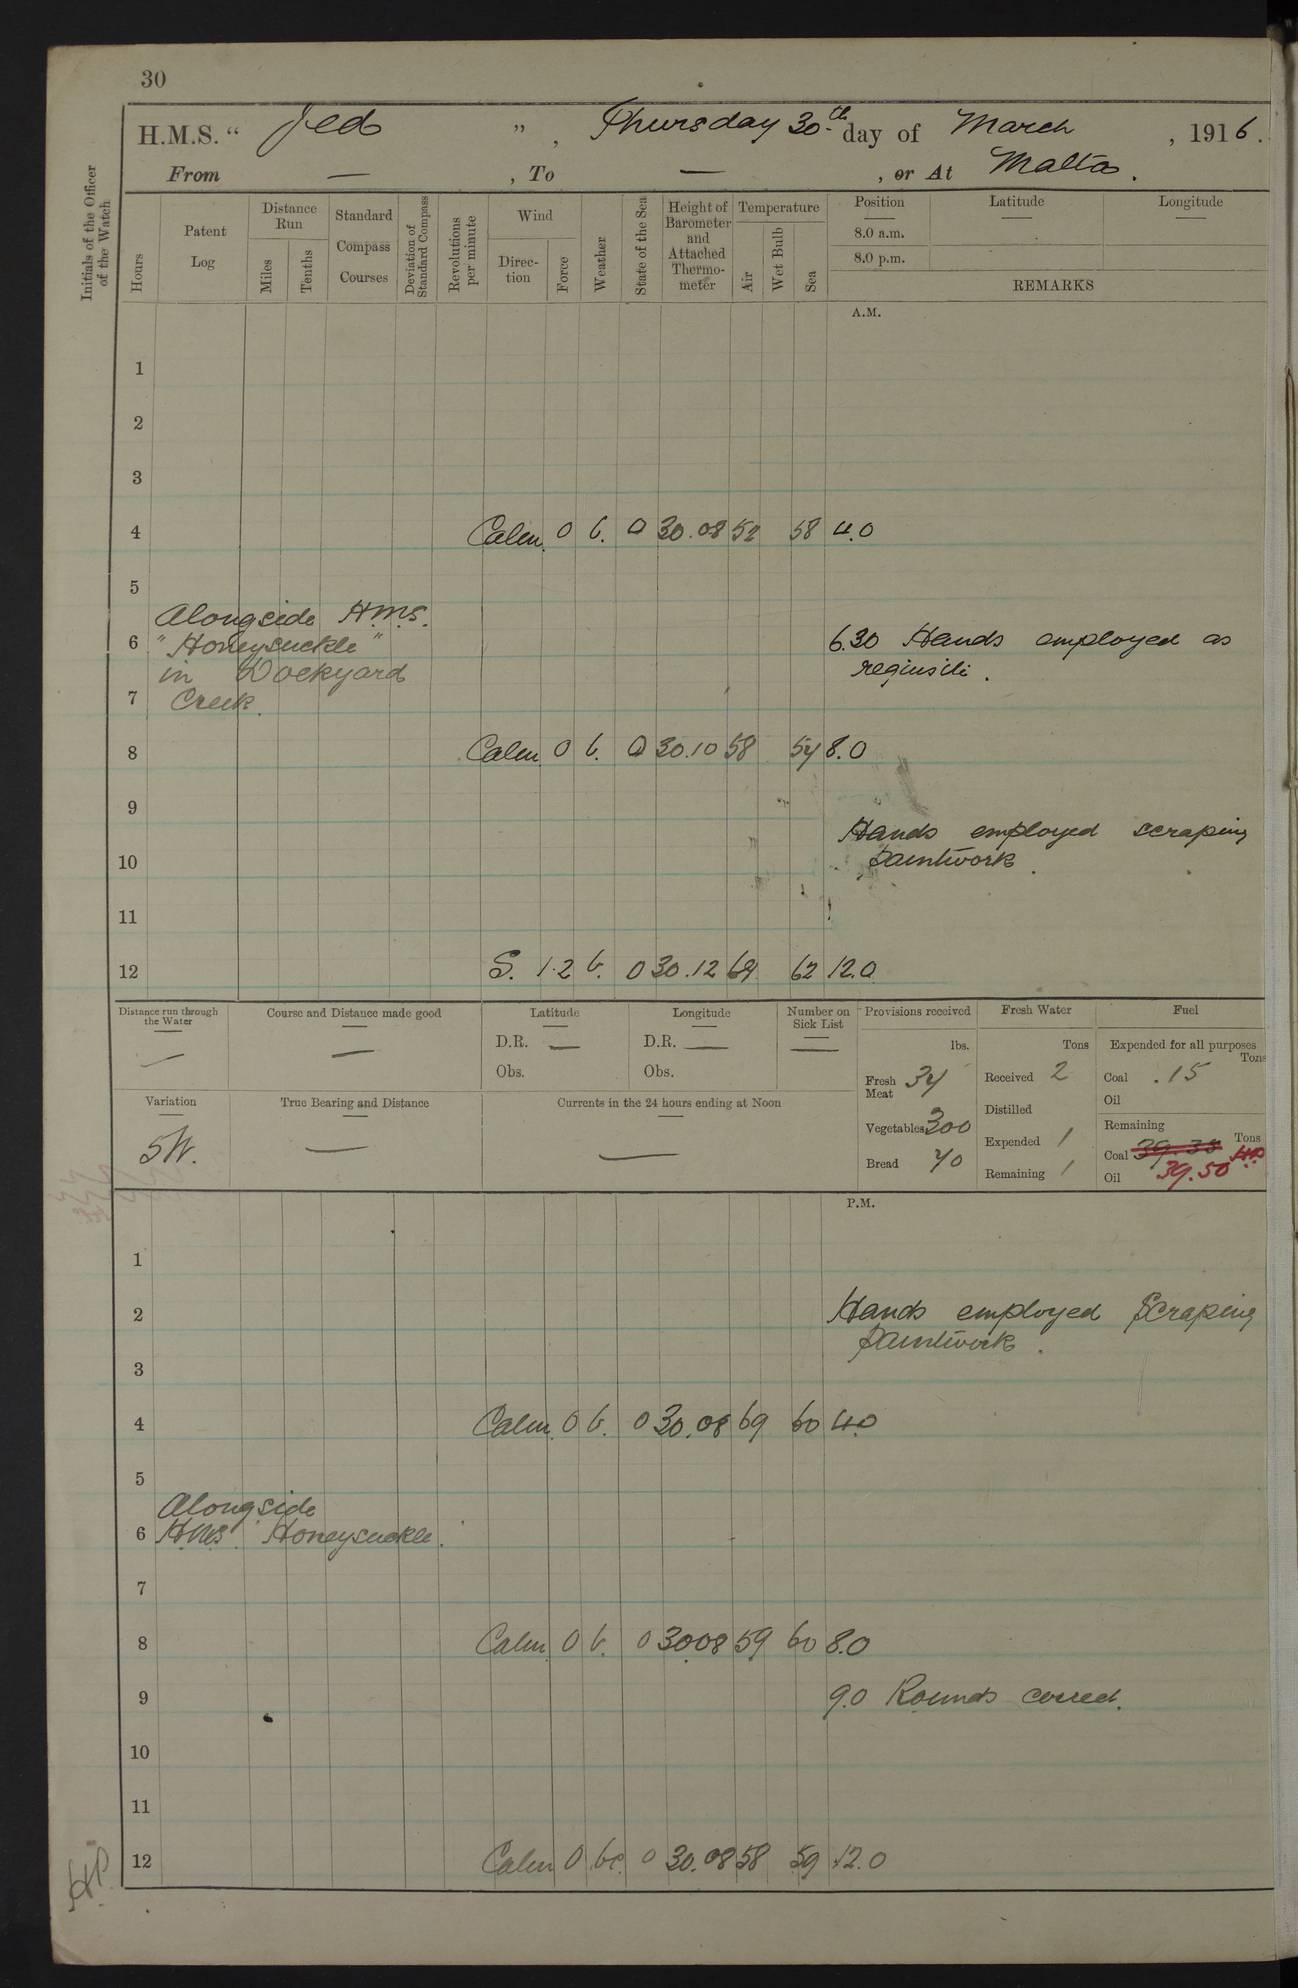 30
H.M.S. “ Jed ” , Thursday 30th day of March , 1916.
From — , To — , or At Malta.
Initials of the Officer of the Watch
Hours
Patent Log
Distance Run
Miles
Tenths
Standard Compass Courses
Deviation of Standard Compass
Revolutions per minute
Wind
Direction
Force
Weather
State of the Sea
Height of Barometer and Attached Thermometer
Temperature
Air
Wet Bulb
Sea
Position
Latitude
Longitude
8.0 a.m.
8.0 p.m.
REMARKS
A.M.
1
2
3
4 Calm. 0 b. 0 30.08 52 58 4.0
5
Alongside H.M.S.
6 " Honeysuckle " 6.30 Hands employed as
in Dockyard requisite.
7 Creek.
8 Calm. 0 b. 0 30.10 58 54 8.0
9
Hands employed scraping
10 paintwork.
11
12 S. 1.2 b. 0 30.12 64 62 12.0
Distance run through the Water
—
Course and Distance made good
—
Latitude
D.R. —
Obs.
Longitude
D.R. —
Obs.
Number on Sick List
—
Provisions received
lbs.
Fresh Meat 34
Vegetables 300
Bread 40
Fresh Water
Tons
Received 2
Distilled
Expended 1
Remaining 1
Fuel
Expended for all purposes
Tons
Coal .15
Oil
Remaining
Tons
Coal 39.38
Oil 39.50
Variation
5W.
True Bearing and Distance
—
Currents in the 24 hours ending at Noon
—
P.M.
1
2 Hands employed Scraping
paintwork.
3
4 Calm. 0 b. 0 30.08 69 60 4.0
5
Alongside
6 H.M.S. Honeysuckle.
7
8 Calm. 0 b. 0 30.08 59 60 8.0
9 9.0 Rounds correct.
10
11
12 Calm 0 bc. 0 30.08 58 59 12.0